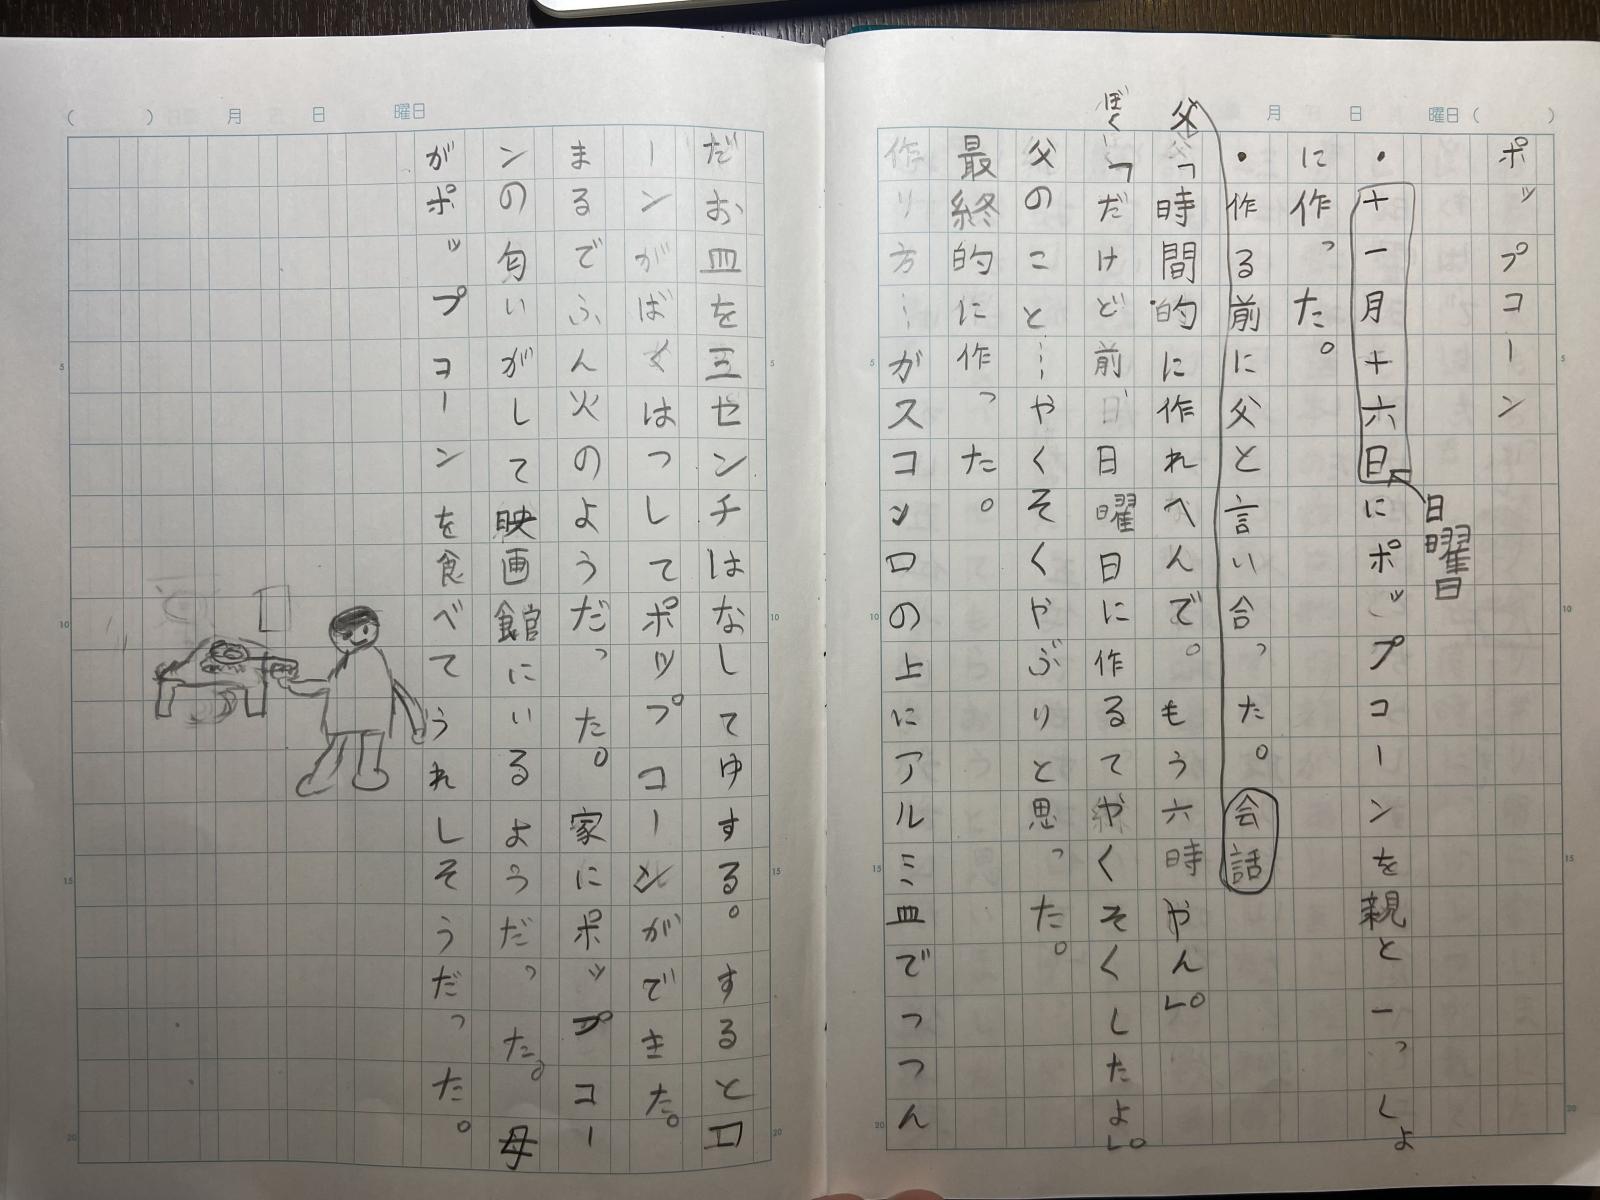 月 日 曜日( )
ポップコーン
・十一月十六日にポップコーンを親と一っしょ
日曜日
に作った。
・作る前に父と言い合った。会話
父「時間的に作れへんで。もう六時やん」。
ぼく「だけど前、日曜日に作るてやくそくしたよ」。
父のこと…やくそくやぶりと思った。
最終的に作った。
作り方…ガスコンロの上にアルミ皿でつつん
( ) 月 日 曜日
だお皿を三センチはなしてゆする。するとコ
ーンがばくはつしてポップコーンができた。
まるでふん火のようだった。家にポップコー
ンの匂いがして映画館にいるようだった。母
がポップコーンを食べてうれしそうだった。
5
10
15
20
5
10
15
20